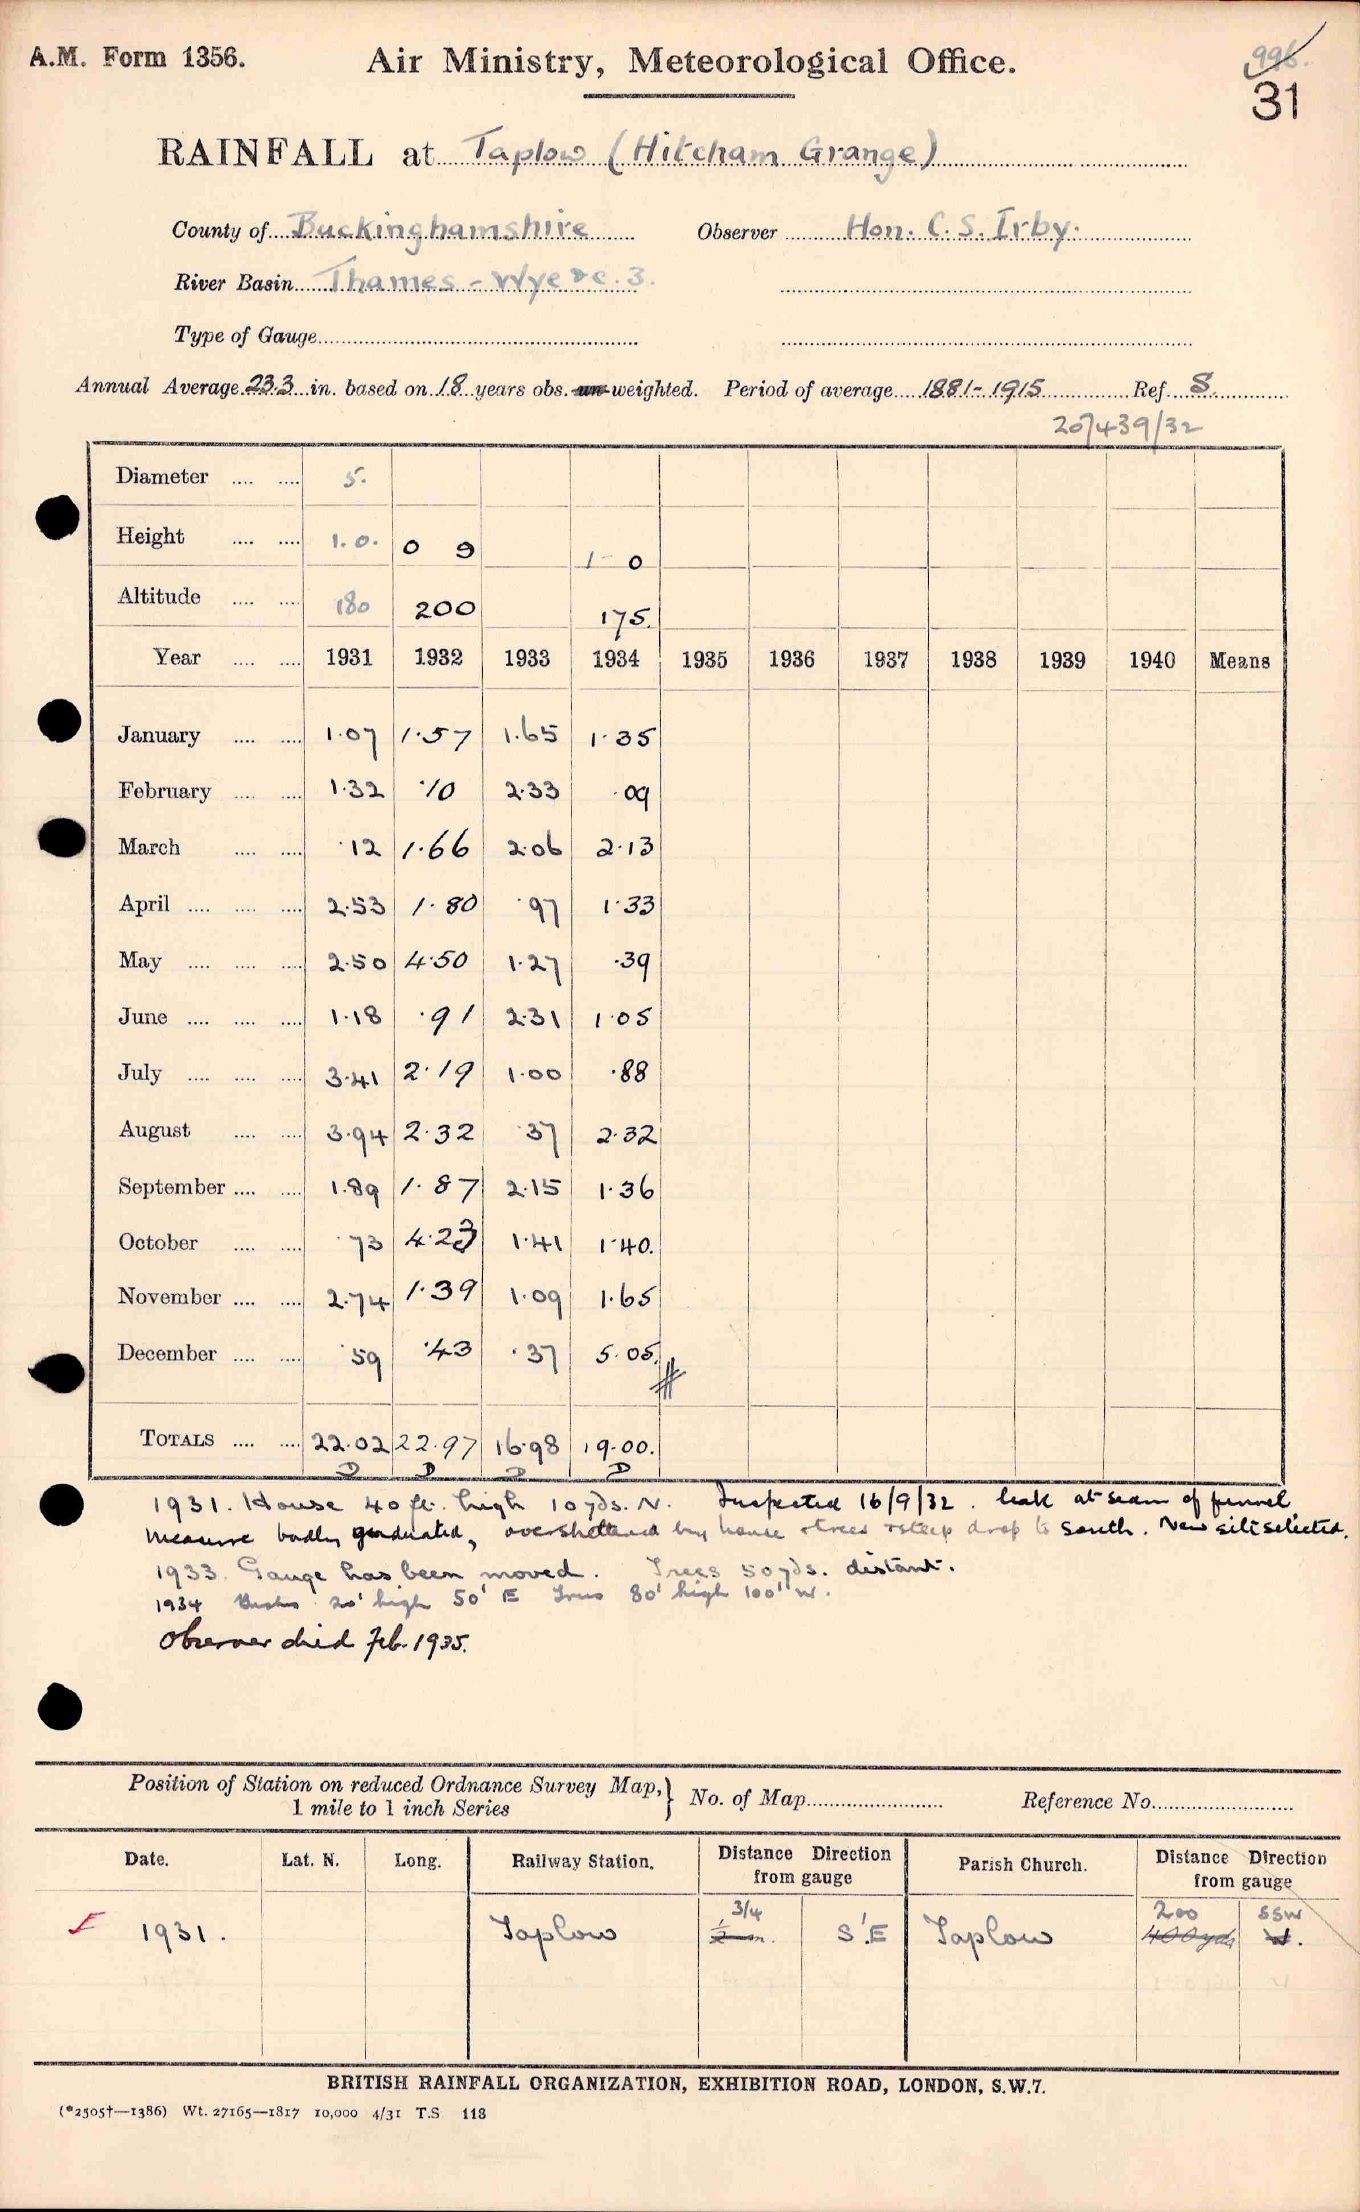 A.M. Form 1356.
Air Ministry, Meteorological Office.
996.
31
RAINFALL at Taplow (Hitcham Grange)
County of Buckinghamshire Observer Hon. C. S. Irby.
River Basin Thames - Wye &c. 3.
Type of Gauge
Annual Average 23.3 in. based on 18 years obs. un-weighted. Period of average 1881-1915 Ref. S.
207439/32
Diameter 5.
Height 1.0. 0 9 1 0
Altitude 180 200 175.
Year 1931 1932 1933 1934 1935 1936 1937 1938 1939 1940 Means
January 1.07 1.57 1.65 1.35
February 1.32 .10 2.33 .09
March .12 1.66 2.06 2.13
April 2.53 1.80 .97 1.33
May 2.50 4.50 1.27 .39
June 1.18 .91 2.31 1.05
July 3.41 2.19 1.00 .88
August 3.94 2.32 .37 2.32
September 1.89 1.87 2.15 1.36
October .73 4.23 1.41 1.40.
November 2.74 1.39 1.09 1.65
December .59 .43 .37 5.05.
TOTALS 22.02 22.97 16.98 19.00.
D D D D
1931. House 40 ft. high 10 yds. N. Inspected 16/9/32. leak at seam of funnel
measure badly graduated, oversheltered by house trees & steep drop to south. New site selected.
1933. Gauge has been moved. Trees 50 yds. distant.
1934 Bushes 20' high 50' E Trees 80' high 100' W.
Observer died Feb. 1935.
Position of Station on reduced Ordnance Survey Map, 1 mile to 1 inch Series } No. of Map Reference No.
Date. Lat. N. Long. Railway Station. Distance Direction from gauge Parish Church. Distance Direction from gauge
3/4 200 SSW
1931. Taplow 1/2 m. S'E Taplow 400 yds W.
BRITISH RAINFALL ORGANIZATION, EXHIBITION ROAD, LONDON, S.W.7.
(*2505†—1386) Wt. 27165—1817 10,000 4/31 T.S 118